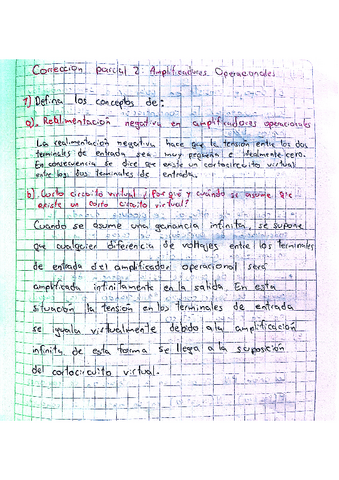 Corrección parcial 2: Amplificadores Operacionales
1) Defina los conceptos de:
a). Realimentación negativa en amplificadores operacionales
La realimentación negativa hace que la tensión entre los dos
terminales de entrada sea muy pequeña e idealmente cero.
En consecuencia se dice que existe un cortocircuito virtual
entre los dos terminales de entrada.
b) Corto circuito virtual ¿Por qué y cuándo se asume que
existe un corto circuito virtual?
Cuando se asume una ganancia infinita, se supone
que cualquier diferencia de voltajes entre los terminales
de entrada del amplificador operacional será
amplificada infinitamente en la salida. En esta
situación la tensión en los terminales de entrada
se iguala virtualmente debido a la amplificación
infinita de esta forma se llega a la suposición
del cortocircuito virtual.